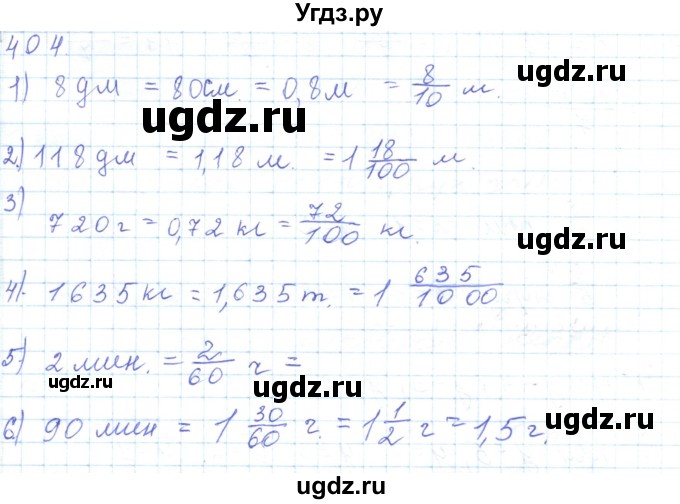 Угдз.ру
404
1) 8 дм = 80 см. = 0,8 м = 8/10 м.
2) 118 дм = 1,18 м. = 1 18/100 м.
3)
720 г = 0,72 кг = 72/100 кг.
4) 1635 кг = 1,635 т. = 1 635/1000
5) 2 мин. = 2/60 ч =
6) 90 мин = 1 30/60 г. = 1 1/2 г = 1,5 г.
ugdz.ru
ugdz.ru
ugdz.ru
ugdz.ru
ugdz.ru
ugdz.ru
ugdz.ru
ugdz.ru
ugdz.ru